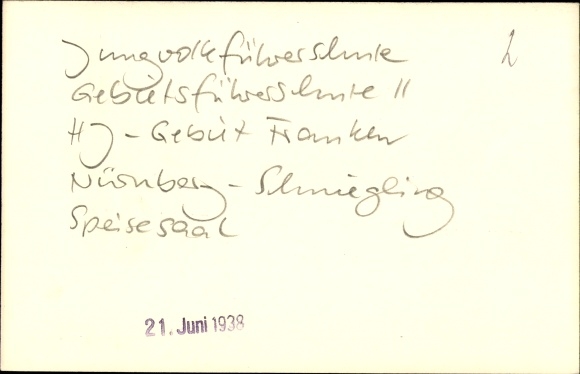 Jungvolkführerschule
2
Gebietsführerschule II
HJ-Gebiet Franken
Nürnberg-Schniegling
Speisesaal
21. Juni 1938